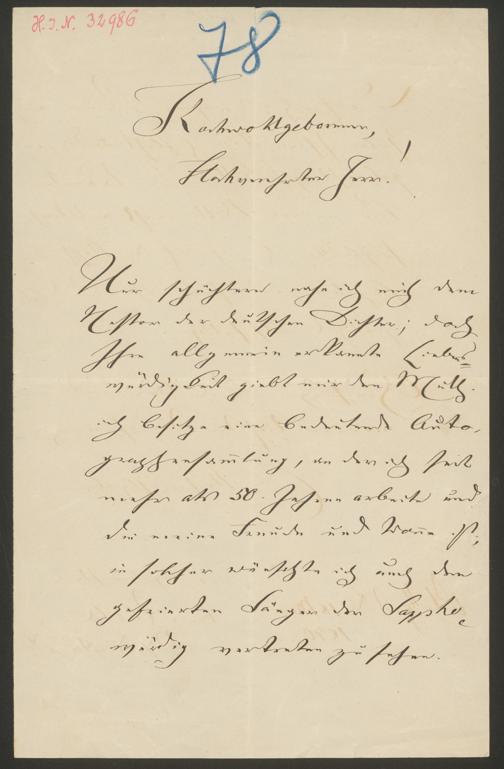 H. I. N. 32986
78
Hochwohlgeborener,
Hochverehrter Herr!
Nur schüchtern nahe ich mich dem
Nestor der deutschen Dichter; doch
Ihre allgemein erkannte Liebens=
würdigkeit giebt mir den Muth.
ich besitze eine bedeutende Auto-
graphensam̅lung, an der ich seit
mehr als 50. Jahren arbeite und
die meine Freude und Wonne ist,
in solcher wünschte ich auch den
gefeierten Sänger der Sappho
würdig vertreten zu sehen.